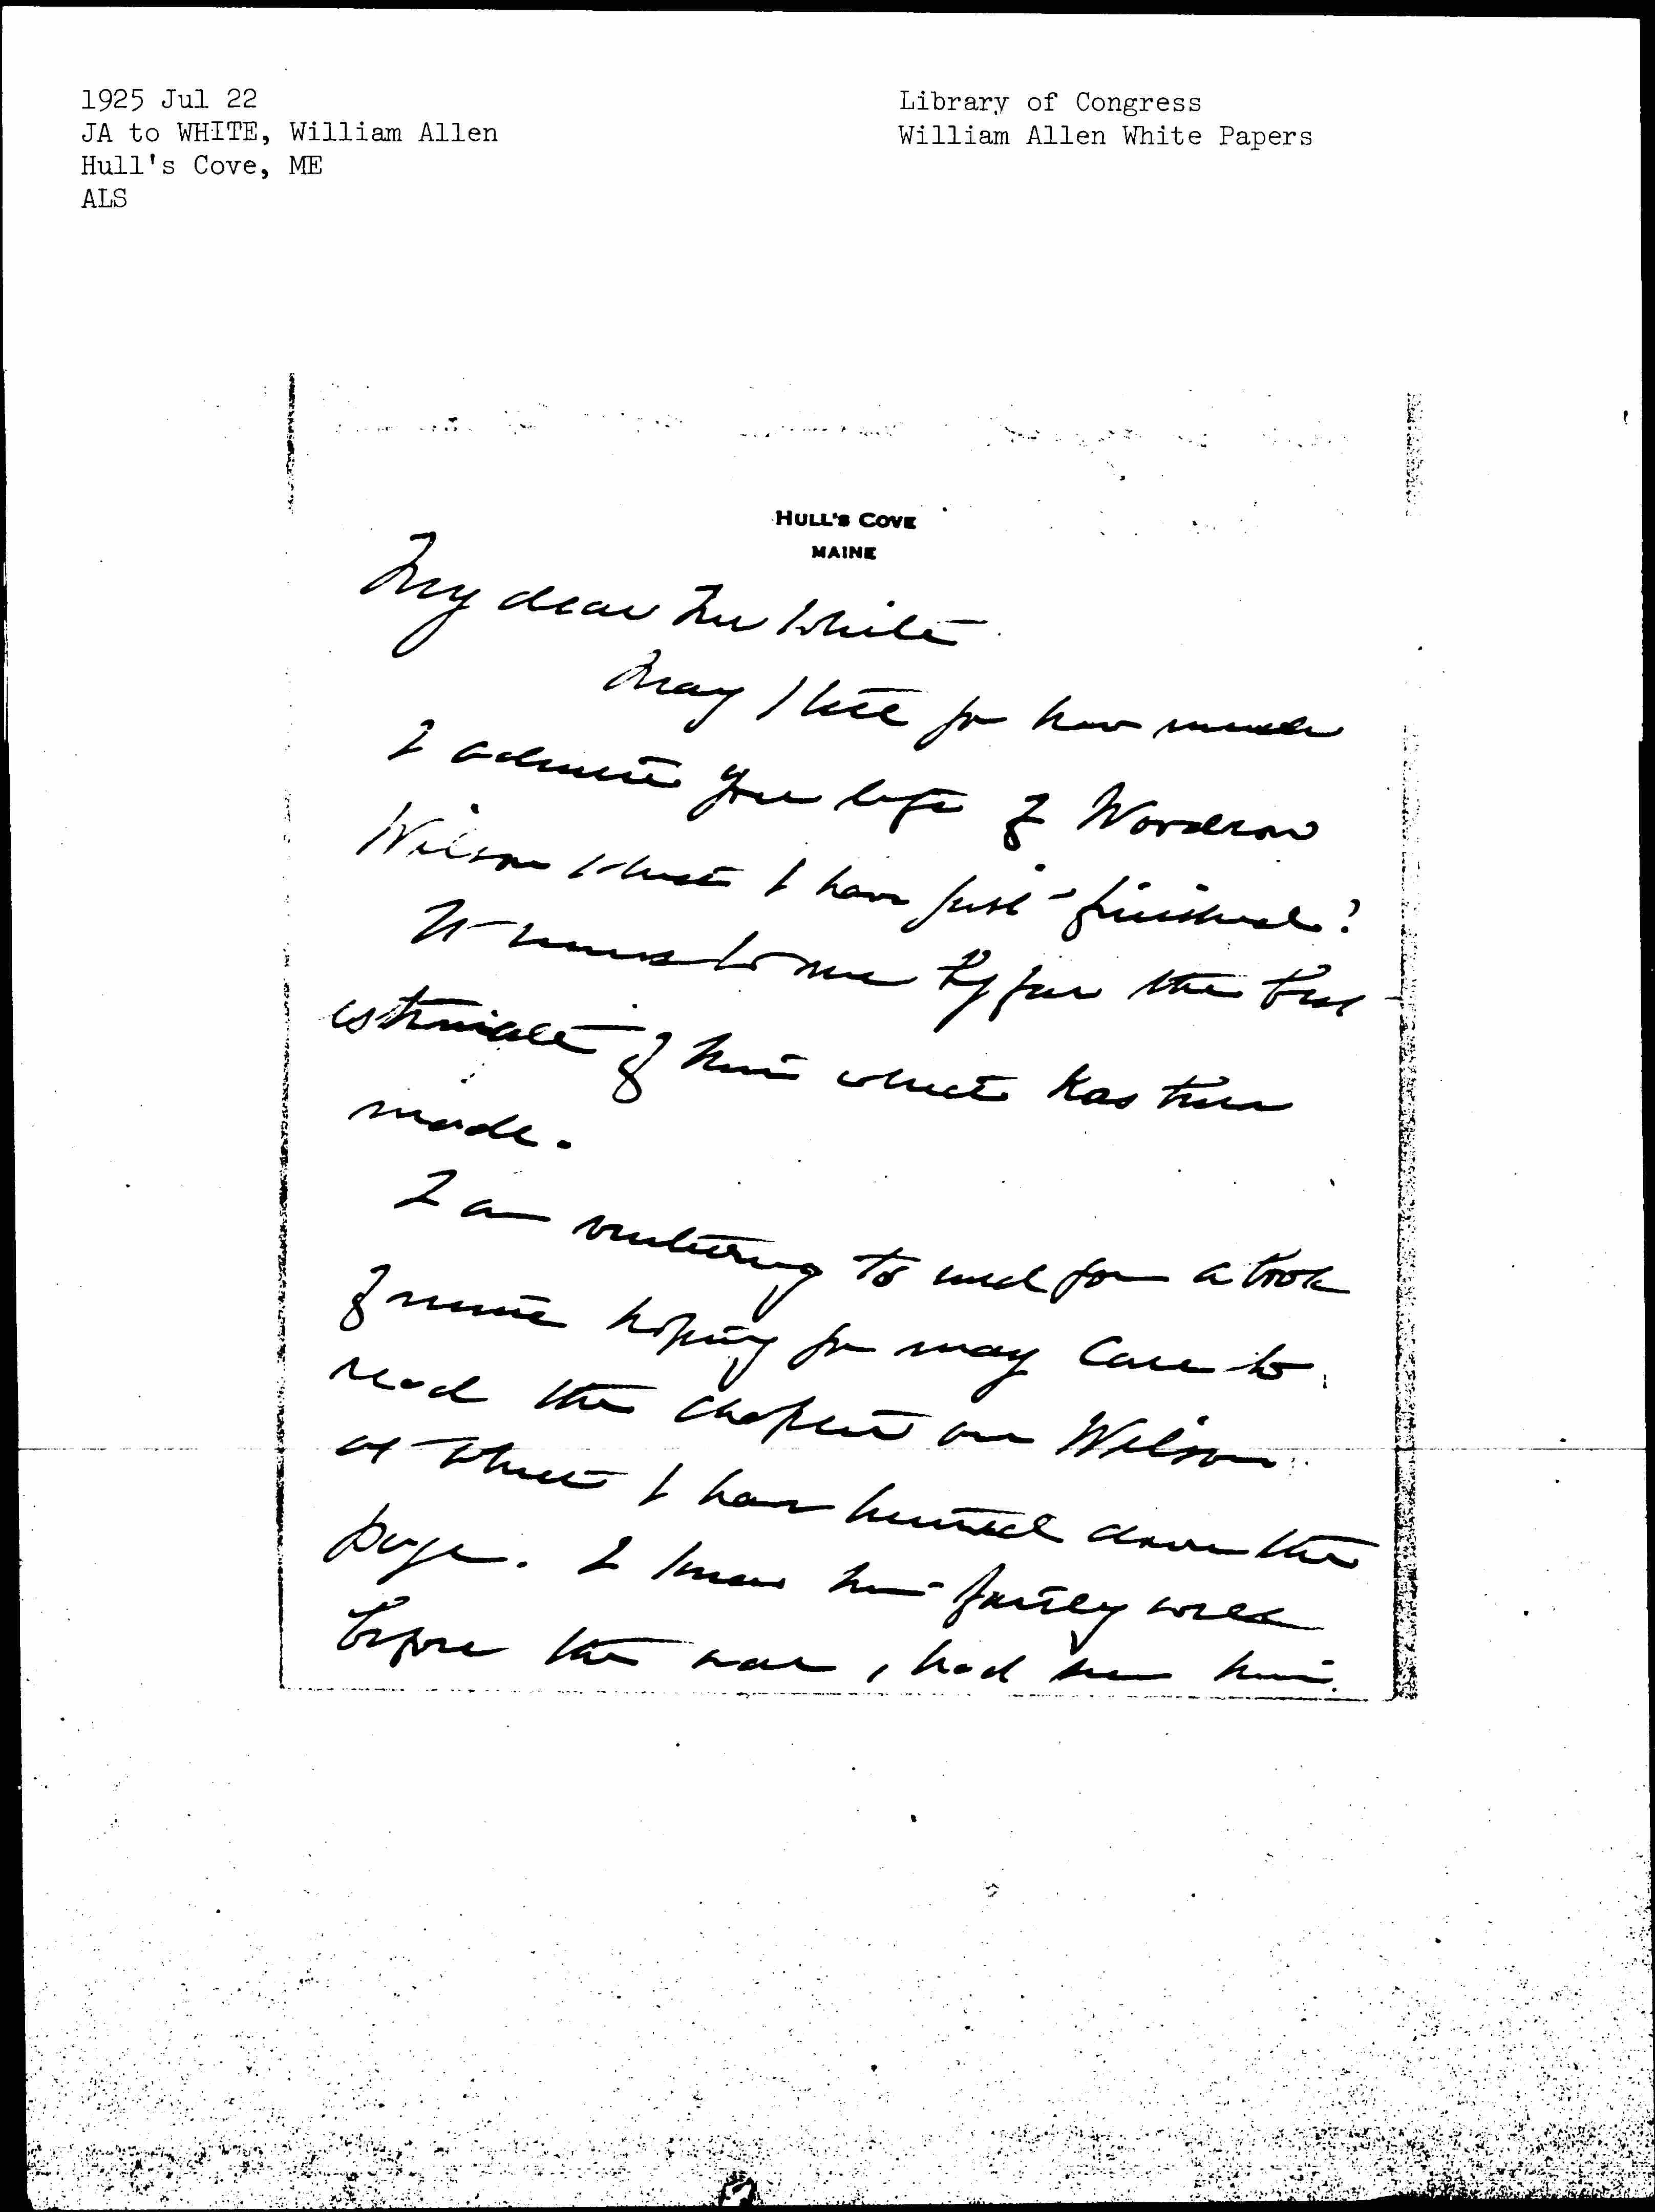 1925 Jul 22
JA to WHITE, William Allen
Hull's Cove, ME
ALS
Library of Congress
William Allen White Papers
HULL'S COVE
MAINE
My dear Mr White
May I tell you how much
I admire your life of Woodrow
Wilson which I have just finished?
It seems to me by far the best
estimate of him which has been
made.
I am venturing to send you a book
of mine hoping you may care to
read the chapter on Wilson
at which I have turned down the
page. I knew him fairly well
before the war, had seen him